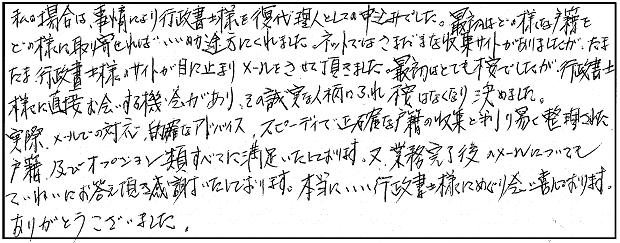 私の場合は、事情により行政書士様を復代理人としての申込みでした。最初はどの様な戸籍を
どの様に取り寄せればいいのか途方にくれました。ネットではさまざまな収集サイトがありましたが、たま
たま行政書士様のサイトが目に止まりメールをさせて頂きました。最初はとても不安でしたが、行政書士
様に直接お会いする機会があり、その誠実な人柄にふれ不安はなくなり決めました。
実際、メールでの対応、的確なアドバイス、スピーディで正確な戸籍の収集と判り易く整理された
戸籍、及びオプション類すべてに満足いたしております。又、業務完了後のメールについても
ていねいにお答え頂き感謝いたしております。本当にいい行政書士様にめぐり会い喜んでおります。
ありがとうございました。